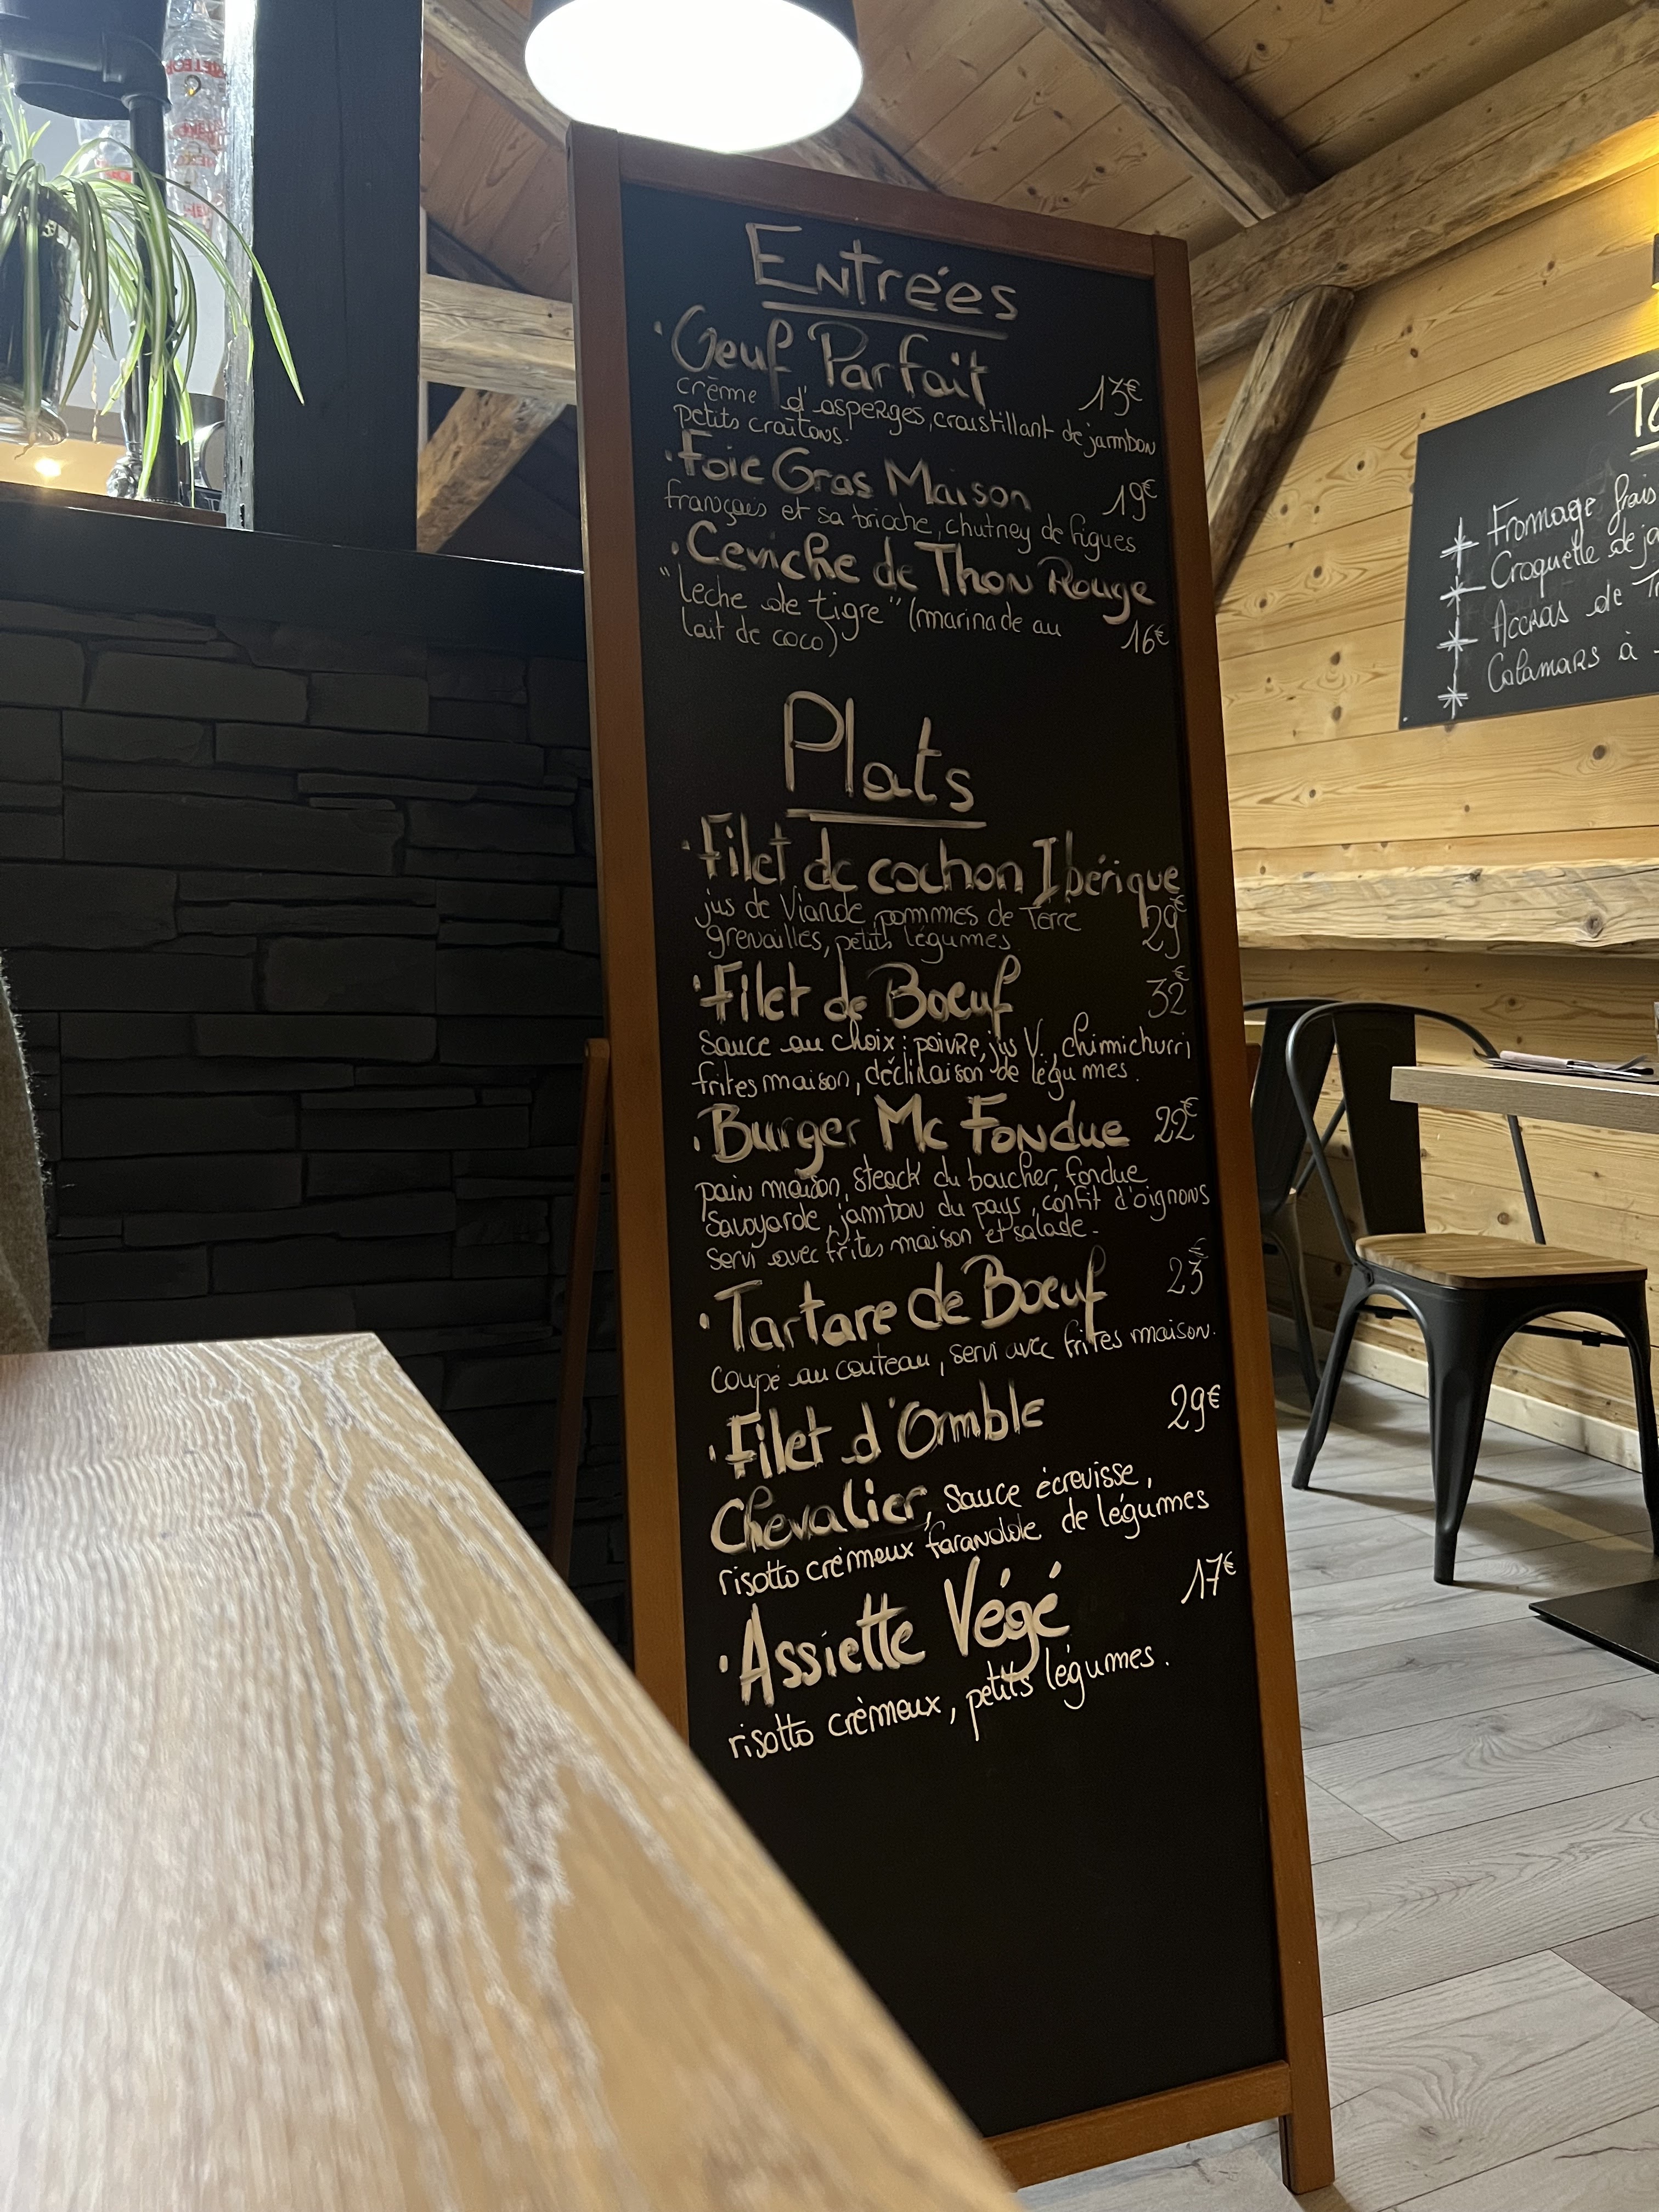 Entrées
• Oeuf Parfait 13€
crème d'asperges, croustillant de jambon
petits croûtons.
• Foie Gras Maison 19€
français et sa brioche, chutney de figues
• Ceviche de Thon Rouge
"leche de tigre" (marinade au 16€
lait de coco)
Plats
• Filet de cochon Ibérique
jus de Viande, pommes de Terre 29€
grenailles, petits légumes
• Filet de Boeuf 32€
Sauce au choix : poivre, jus V., chimichurri
frites maison, déclinaison de légumes.
• Burger Mc Fondue 22€
pain maison, steack du boucher, fondue
Savoyarde, jambon du pays, confit d'oignons
servi avec frites maison et salade.
• Tartare de Boeuf 23€
coupé au couteau, servi avec frites maison.
• Filet d'Omble 29€
Chevalier, sauce écrevisse,
risotto crémeux farandole de légumes
• Assiette Végé 17€
risotto crèmeux, petits légumes.
Fromage frais
Croquette de
Accras de
Calamars à